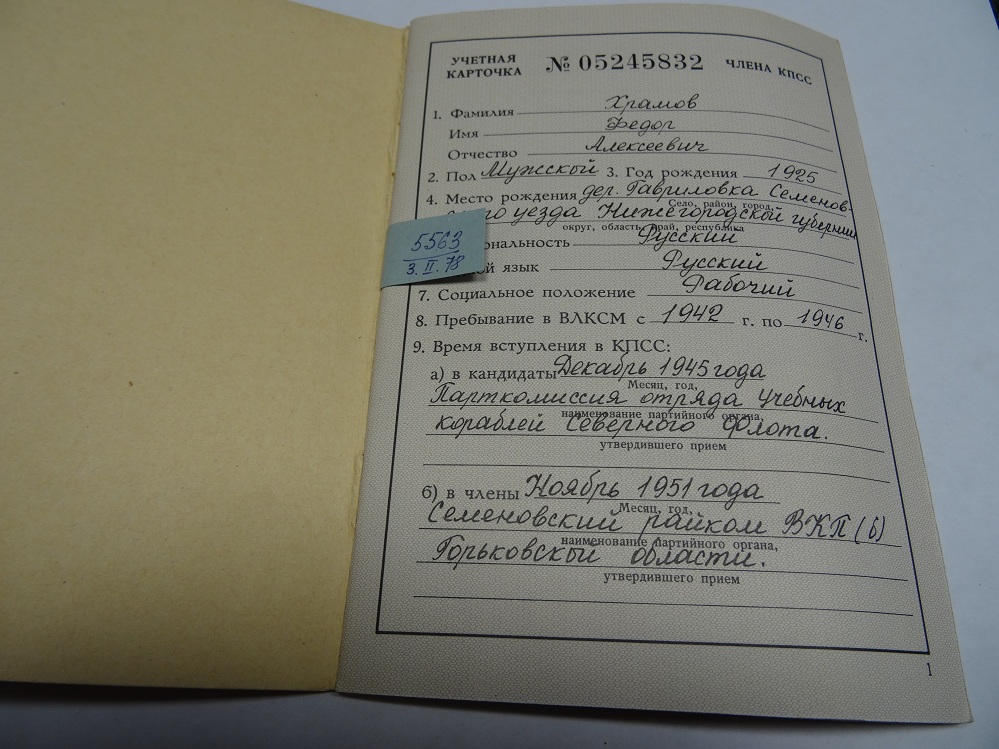 УЧЕТНАЯ КАРТОЧКА № 05245832 ЧЛЕНА КПСС
1. Фамилия Храмов
Имя Федор
Отчество Алексеевич
2. Пол Мужской 3. Год рождения 1925
4. Место рождения дер. Гавриловка Семенов-
Село, район, город,
ского уезда Нижегородской губернии
округ, область, край, республика
5563
3.II.78
ональность Русский
ой язык Русский
7. Социальное положение Рабочий
8. Пребывание в ВЛКСМ с 1942 г. по 1946 г.
9. Время вступления в КПСС:
а) в кандидаты Декабрь 1945 года
Месяц, год,
Парткомиссия отряда учебных
наименование партийного органа,
кораблей Северного флота.
утвердившего прием
б) в члены Ноябрь 1951 года
Месяц, год,
Семеновский райком ВКП(б)
наименование партийного органа,
Горьковской области.
утвердившего прием
1